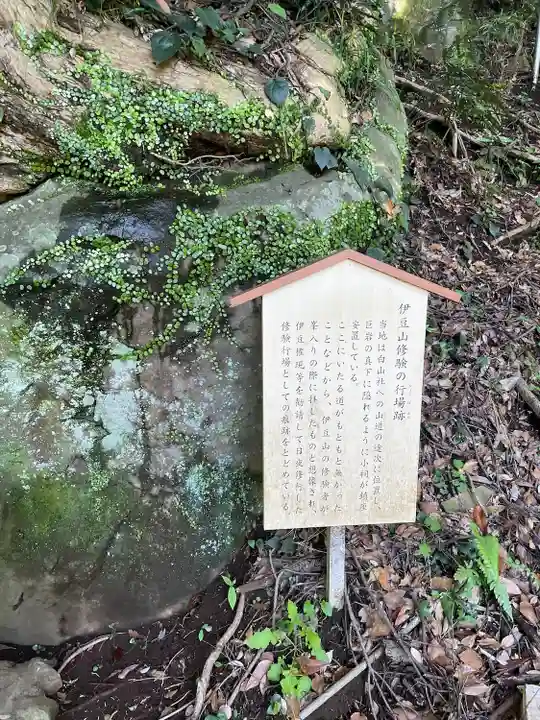 伊豆山修験の行場跡
当地は白山社への山道の途次に位置し、
巨岩の真下に隠れるように小祠が鎮座
安置している。
ここにいたる道がもともと無かった
ことなどから、伊豆山の修験者が
峯入りの際に拝したものと想像され、
伊豆権現等を勧請して日夜修行した
修験行場としての痕跡をとどめている。